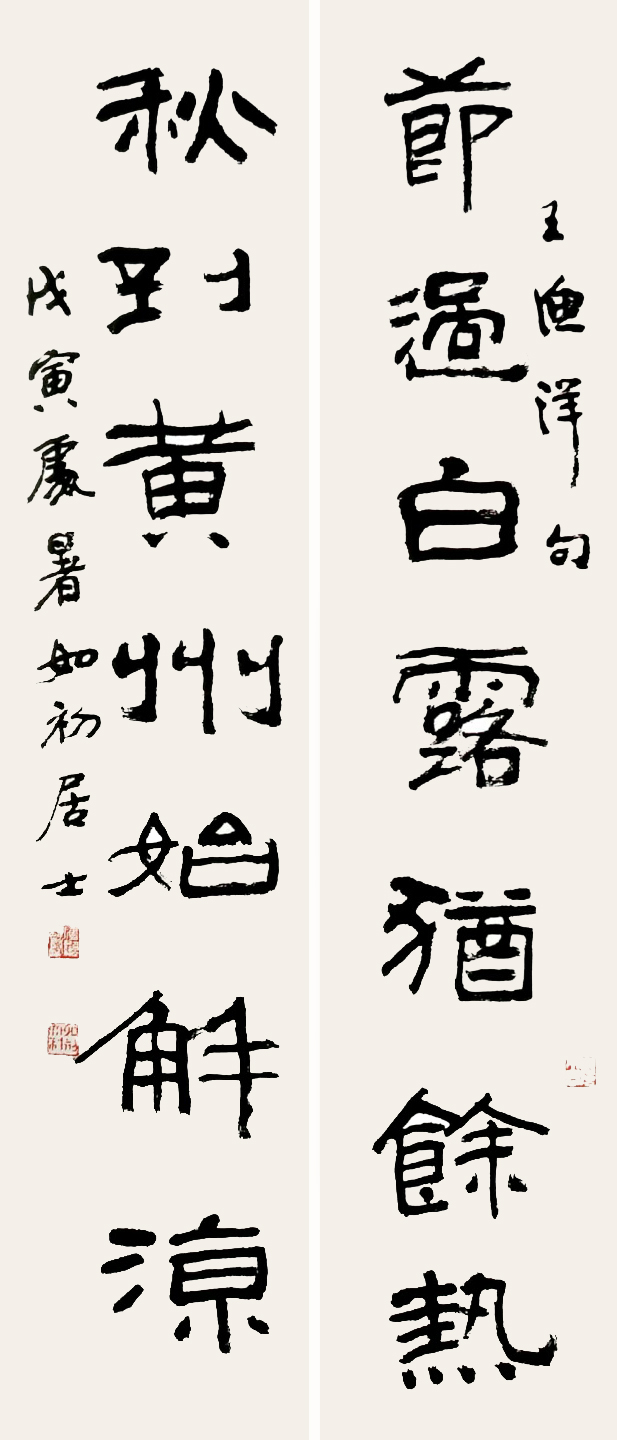 節過白露猶餘熱
王漁洋句
秋到黄州始解涼
戊寅處暑如初居士